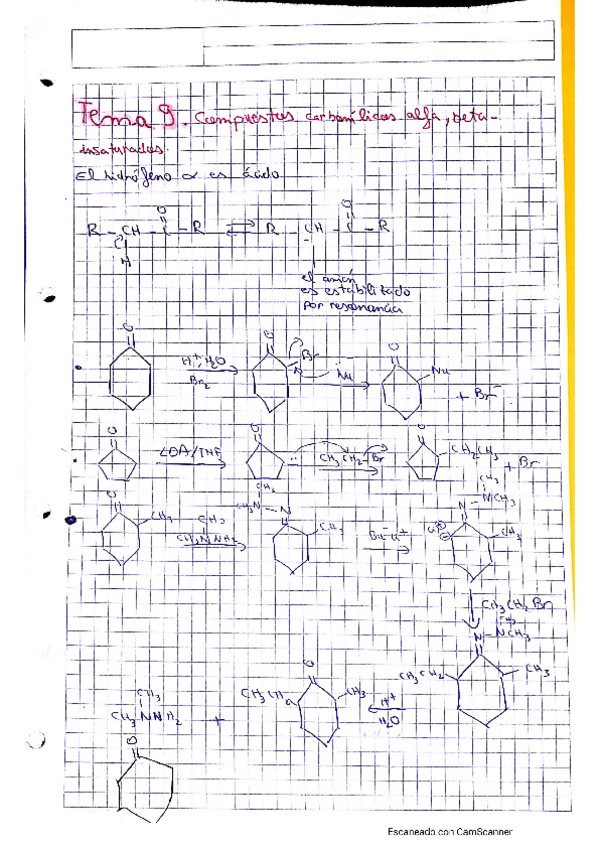 Tema 9. Compuestos carbonílicos alfa, beta-
insaturados.
El hidrógeno α es ácido
O O
R - CH - C - R ⇌ R - CH - C - R
H -
el anión
es estabilizado
por resonancia
O O O
H+, H2O Br Nu
Br2 Nu- + Br-
O O O
LDA/THF CH3CH2-Br CH2CH3 + Br
O CH3 CH3
CH3 CH3N-N CH3 N-NCH3
CH3 CH3NNH2 Bu-Li+ Li+ CH3
CH3CH2Br
CH3
N-NCH3
CH3 O CH3CH2 CH3
CH3NNH2 + CH3CH2 CH3 H+
H2O
O
Escaneado con CamScanner